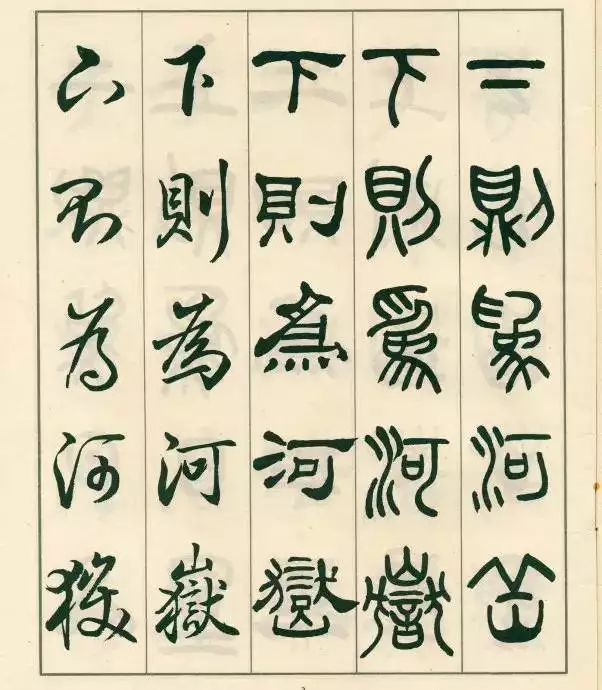 下則為河嶽
下則為河嶽
下則為河嶽
下則為河嶽
下則為河嶽